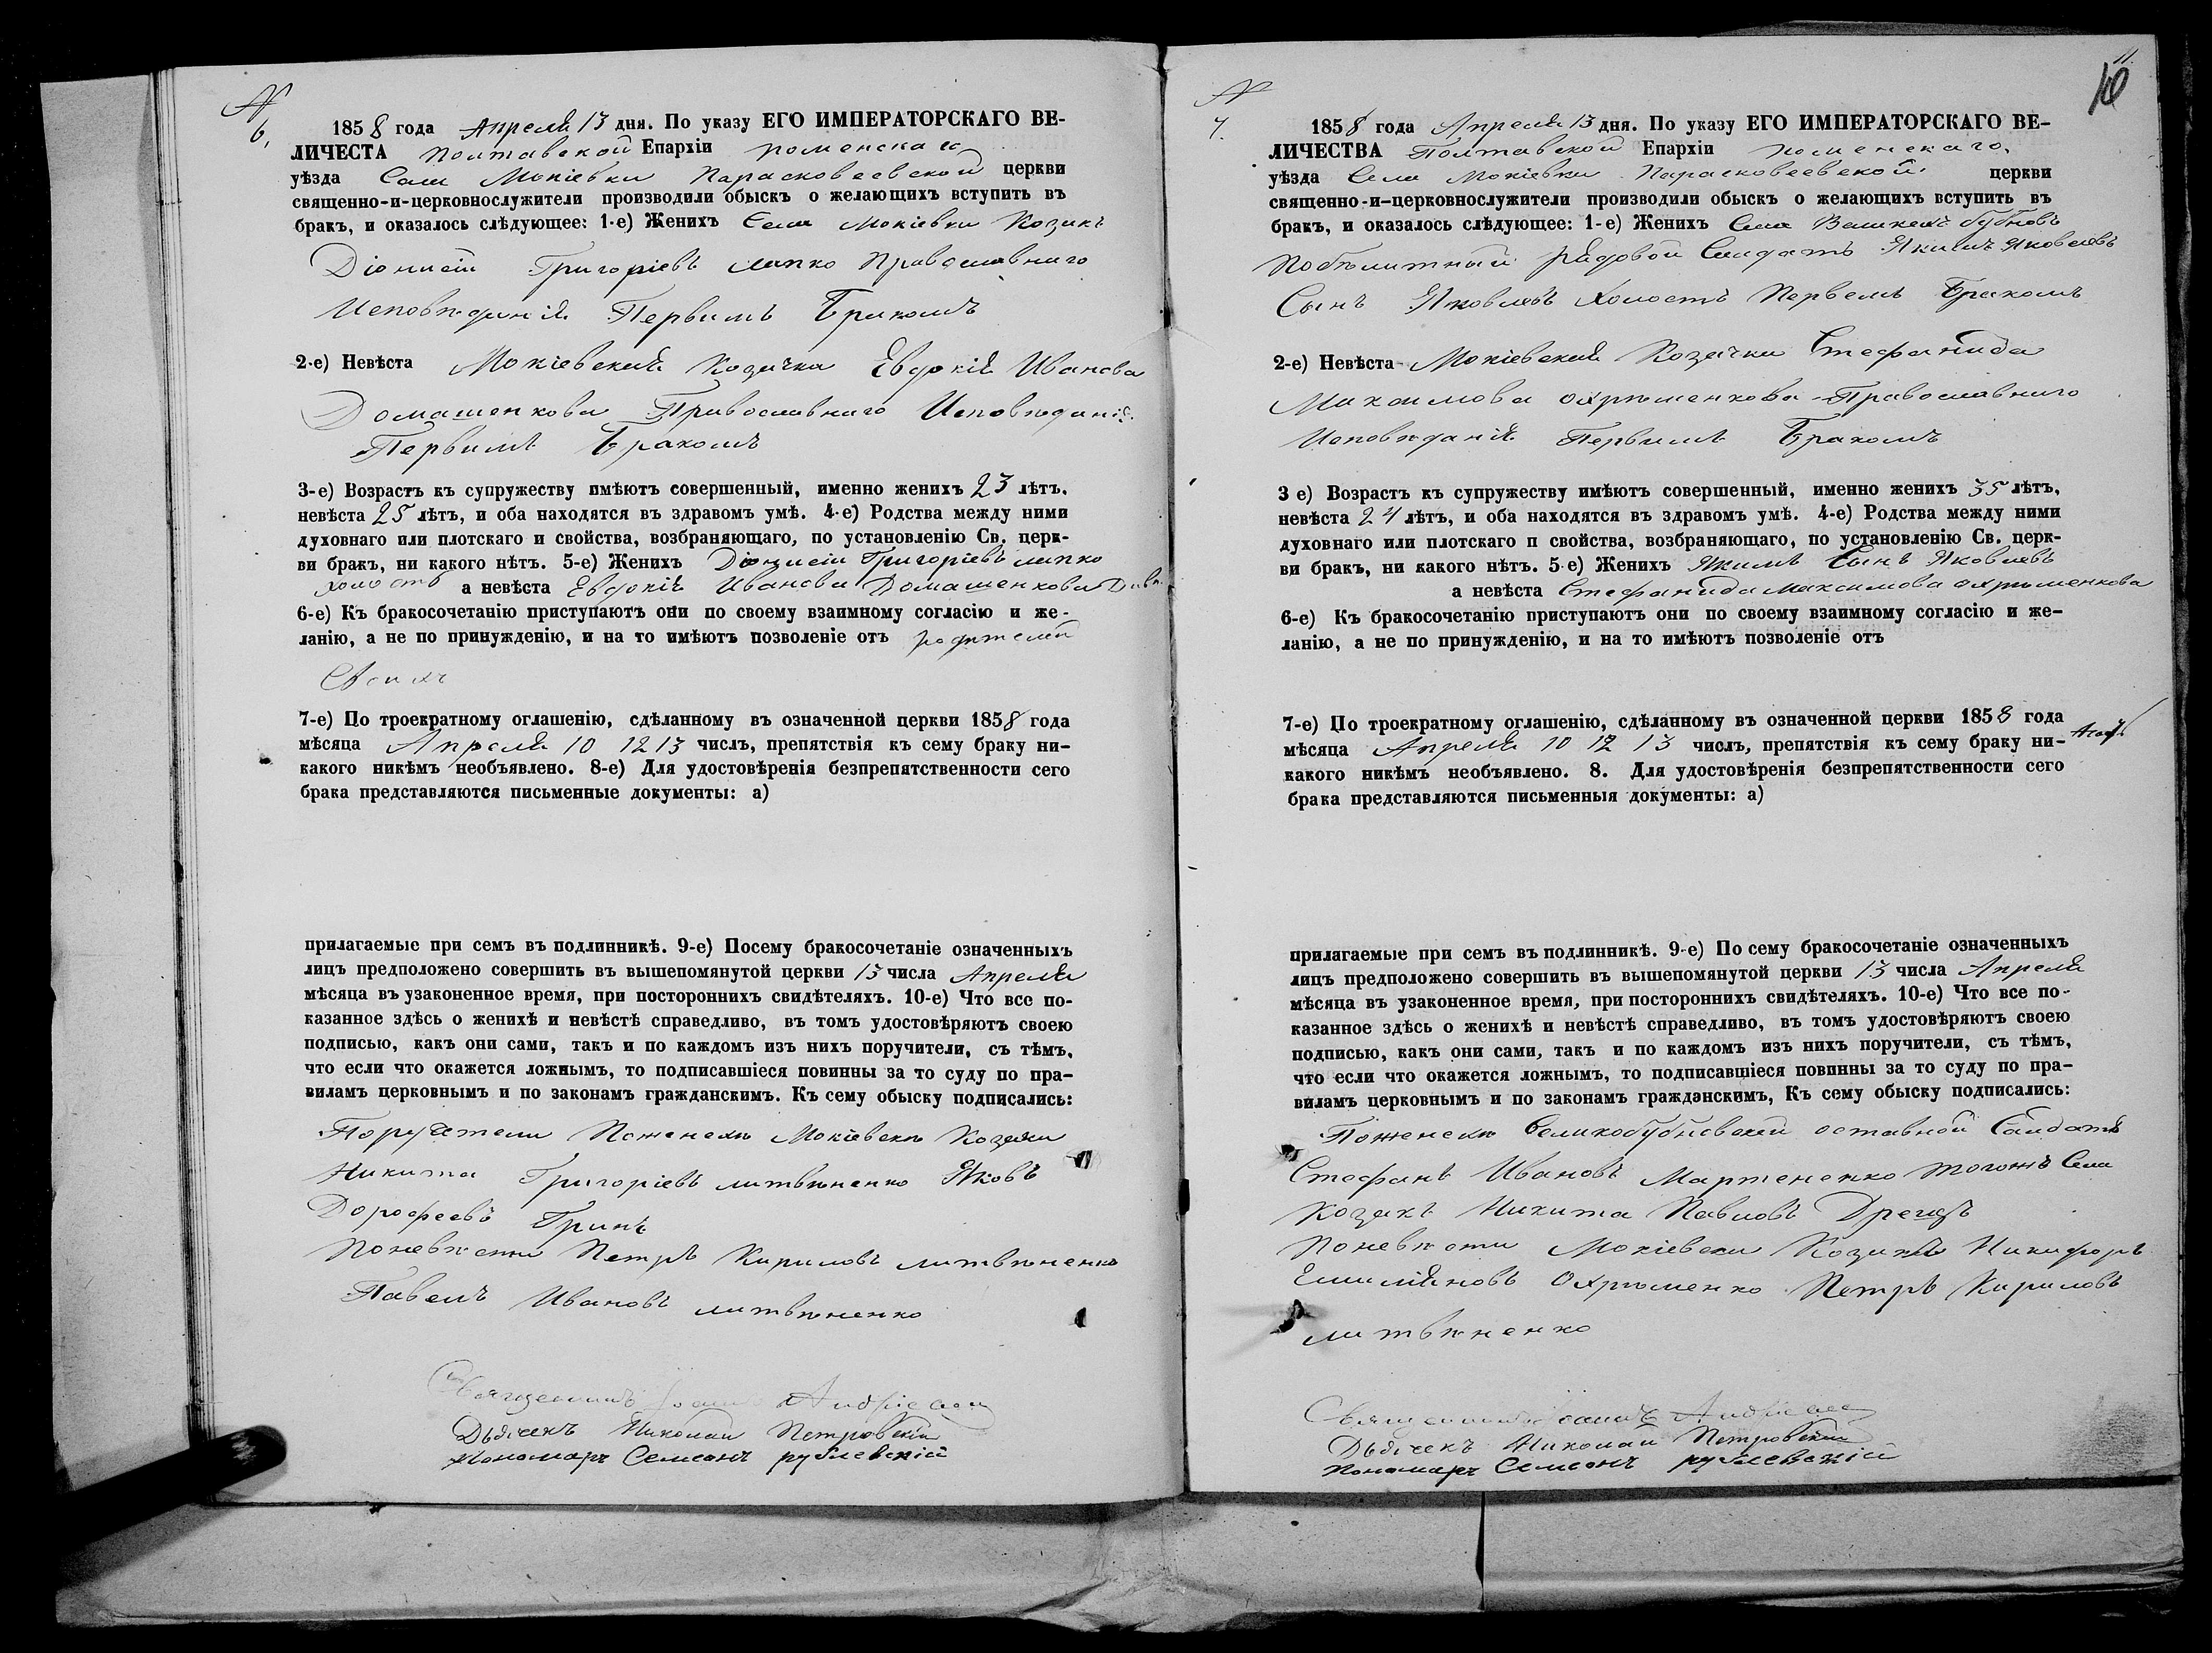 №
6.
1858 года Апреля 13 дня. По указу ЕГО ИМПЕРАТОРСКАГО ВЕ-
ЛИЧЕСТА Полтавской Епархіи роменскаго
уѣзда Села Мокіевки Парасковеевской церкви
священно-и-церковнослужители производили обыскъ о желающихъ вступить въ
бракъ, и оказалось слѣдующее: 1-е) Женихъ Села Мокіевки Козакъ
Діонисій Григоріевъ лапко Православнаго
Исповѣданія Первимъ Бракомъ
2-е) Невѣста Мокіевская Козачка Евдокія Иванова
Домашенкова Православнаго Исповѣданія
Первимъ Бракомъ
3-е) Возрастъ къ супружеству имѣютъ совершенный, именно женихъ 23 лѣтъ,
невѣста 25 лѣтъ, и оба находятся въ здравомъ умѣ. 4-е) Родства между ними
духовнаго или плотскаго и свойства, возбраняющаго, по установленію Св. церк-
ви бракъ, ни какого нѣтъ. 5-е) Женихъ Діонисій Григоріевъ лапко
холостъ а невѣста Евдокія Иванова Домашенкова
6-е) Къ бракосочетанію приступаютъ они по своему взаимному согласію и же-
ланію, а не по принужденію, и на то имѣютъ позволеніе отъ родителей
Своихъ
7-е) По троекратному оглашенію, сдѣланному въ означенной церкви 1858 года
мѣсяца Апреля 10 12 13 числъ, препятствія къ сему браку ни-
какого никѣмъ необъявлено. 8-е) Для удостовѣренія безпрепятственности сего
брака представляются письменные документы: а)
прилагаемые при семъ въ подлинникѣ. 9-е) Посему бракосочетаніе означенныхъ
лицъ предположено совершить въ вышепомянутой церкви 13 числа Апреля
мѣсяца въ узаконенное время, при постороннихъ свидѣтеляхъ. 10-е) Что все по-
казанное здѣсь о женихѣ и невѣстѣ справедливо, въ томъ удостовѣряютъ своею
подписью, какъ они сами, такъ и по каждомъ изъ нихъ поручители, съ тѣмъ,
что если что окажется ложнымъ, то подписавшіеся повинны за то суду по пра-
виламъ церковнымъ и по законамъ гражданскимъ. Къ сему обыску подписались:
Поручатели Поженеху Мокіевски Козаки
Никита Григоріевъ литвѣненко Яковъ
Дорофеевъ Гринь
Поневѣсти Петръ Кириловъ литвѣненко
Павелъ Ивановъ литвѣненко
Священникъ Іоаннъ
Дьячекъ Николай Петровскій
Пономарь Семеонъ рублевскій
11.
10
№
7.
1858 года Апреля 13 дня. По указу ЕГО ИМПЕРАТОРСКАГО ВЕ-
ЛИЧЕСТВА Полтавской Епархіи роменскаго
уѣзда Села Мокіевки Парасковеевской церкви
священно-и-церковнослужители производили обыскъ о желающихъ вступить въ
бракъ, и оказалось слѣдующее: 1-е) Женихъ Села бубновъ
рядовой Салдатъ Якимъ Яковлевъ
Сынъ Яковлевъ Холостъ Первемъ Бракомъ
2-е) Невѣста Мокіевская Козачка Стефанида
Максимова охрѣменкова Православнаго
Исповѣданія Первимъ Бракомъ
3 е) Возрастъ къ супружеству имѣютъ совершенный, именно женихъ 35 лѣтъ,
невѣста 24 лѣтъ, и оба находятся въ здравомъ умѣ. 4-е) Родства между ними
духовнаго или плотскаго п свойства, возбраняющаго, по установленію Св. церк-
ви бракъ, ни какого нѣтъ. 5-е) Женихъ Якимъ Сынъ Яковлевъ
а невѣста Стефанида Максимова охрѣменкова
6-е) Къ бракосочетанію приступаютъ они по своему взаимному согласію и же-
ланію, а не по принужденію, и на то имѣютъ позволеніе отъ
7-е) По троекратному оглашенію, сдѣланному въ означенной церкви 1858 года
мѣсяца Апреля 10 12 13 числъ, препятствія къ сему браку ни-
какого никѣмъ необъявлено. 8. Для удостовѣренія безпрепятственности сего
брака представляются письменныя документы: а)
прилагаемые при семъ въ подлинникѣ. 9-е) По сему бракосочетаніе означенныхъ
лицъ предположено совершить въ вышепомянутой церкви 13 числа Апреля
мѣсяца въ узаконенное время, при постороннихъ свидѣтеляхъ. 10-е) Что все по-
казанное здѣсь о женихѣ и невѣстѣ справедливо, въ томъ удостовѣряютъ своею
подписью, какъ они сами, такъ и по каждомъ изъ нихъ поручители, съ тѣмъ,
что если что окажется ложнымъ, то подписавшіеся повинны за то суду по пра-
виламъ церковнымъ и по законамъ гражданскимъ, Къ сему обыску подписались:
Поженеху великобубновской оставной Салдатъ
Стефанъ Ивановъ Мартененко тогожъ Села
Козакъ Никита Павловъ
Поневѣсти Мокіевски Козаки Никифоръ
Емиліяновъ Охрѣменко Петръ Кириловъ
литвѣненко
Священникъ Іоаннъ
Дьячекъ Николай Петровскій
Пономарь Семеонъ рублевскій